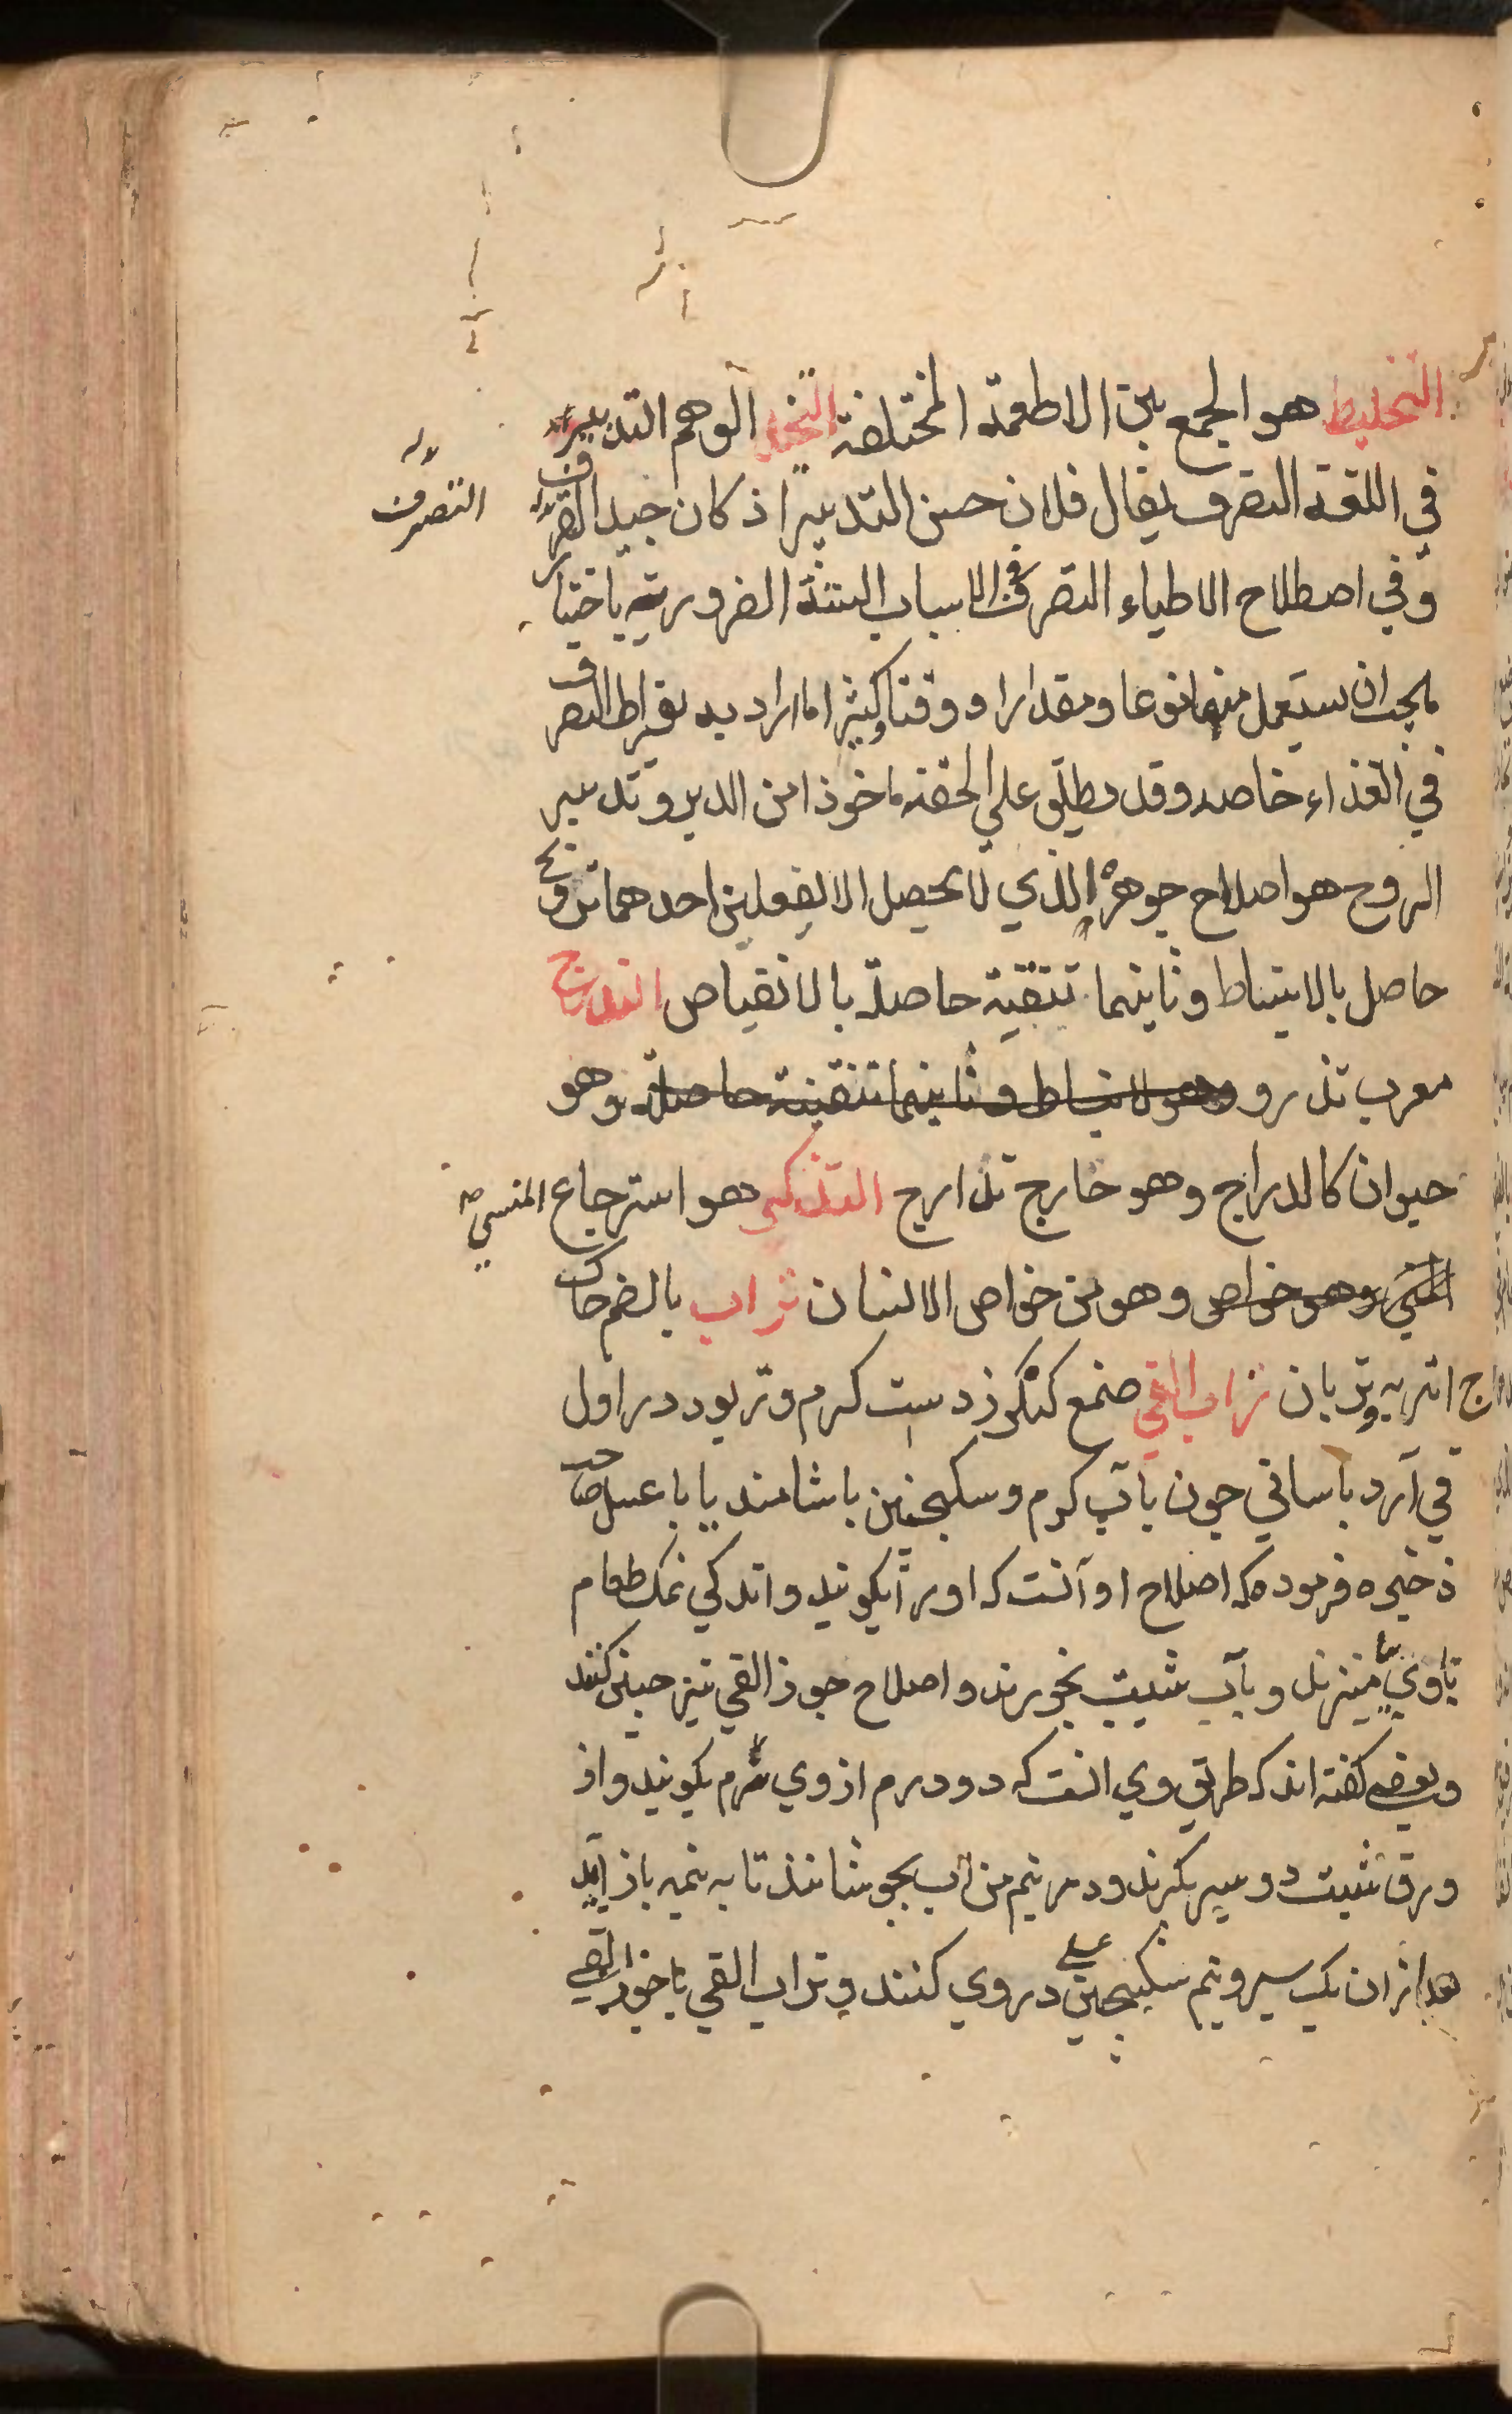 التخليط هو الجمع بين الاطعمة المختلفة التخيل الوهم التدبير
في اللغة التصرف يقال فلان حسن التدبير اذ كان جيد التصرف
التصرف
وفي اصطلاح الاطباء التصرف في الاسباب الستة الضرورية باختيار
ما يجب ان يستعمل منها نوعا ومقدارا و وقتا وكثيرا ما اراد به بقراط التصرف
في الغذاء خاصه وقد يطلق علي الحقنه ماخوذا من الدبر وتدبير
الروح هو اصلاح جوهره الذي لا يحصل الا بفعلين احدهما تروح
حاصل بالانبساط وثانيهما تنقية حاصلة بالانقباض التدرج
معرب تذرو وهو لانبساط وثانيهما تنقية حاصلة وهو
حيوان كالدراج وهو خارج تدارج التذكر هو استرجاع المنسي
المنسي وهو خواص وهو من خواص الانسان تراب بالضم خاك
ج اتربه وتربان تراب القي صمغ كنكرزدست كرم وتر بود در اول
قي آرد باساني چون با آب كرم وسكنجبين باشامند يا با عسل صاحب
ذخيره فرموده كه اصلاح او آنست كه اورا بكوبند واندكي نمك طعام
باوي بياميزند و بآب شبت بخورند واصلاح جوز القي نيز چنين كنند
وبعضي كفته اند كه طريق وي انست كه دو درم از وي نرم بكوبند واز
ورق شبت دو سير بكيرند ودر نيم من آب بجوشانند تا به نيمه باز آيد
بعد ازان يك سير ونيم سكنجبين عسلي در وي كنند وتراب القي يا جوز القي